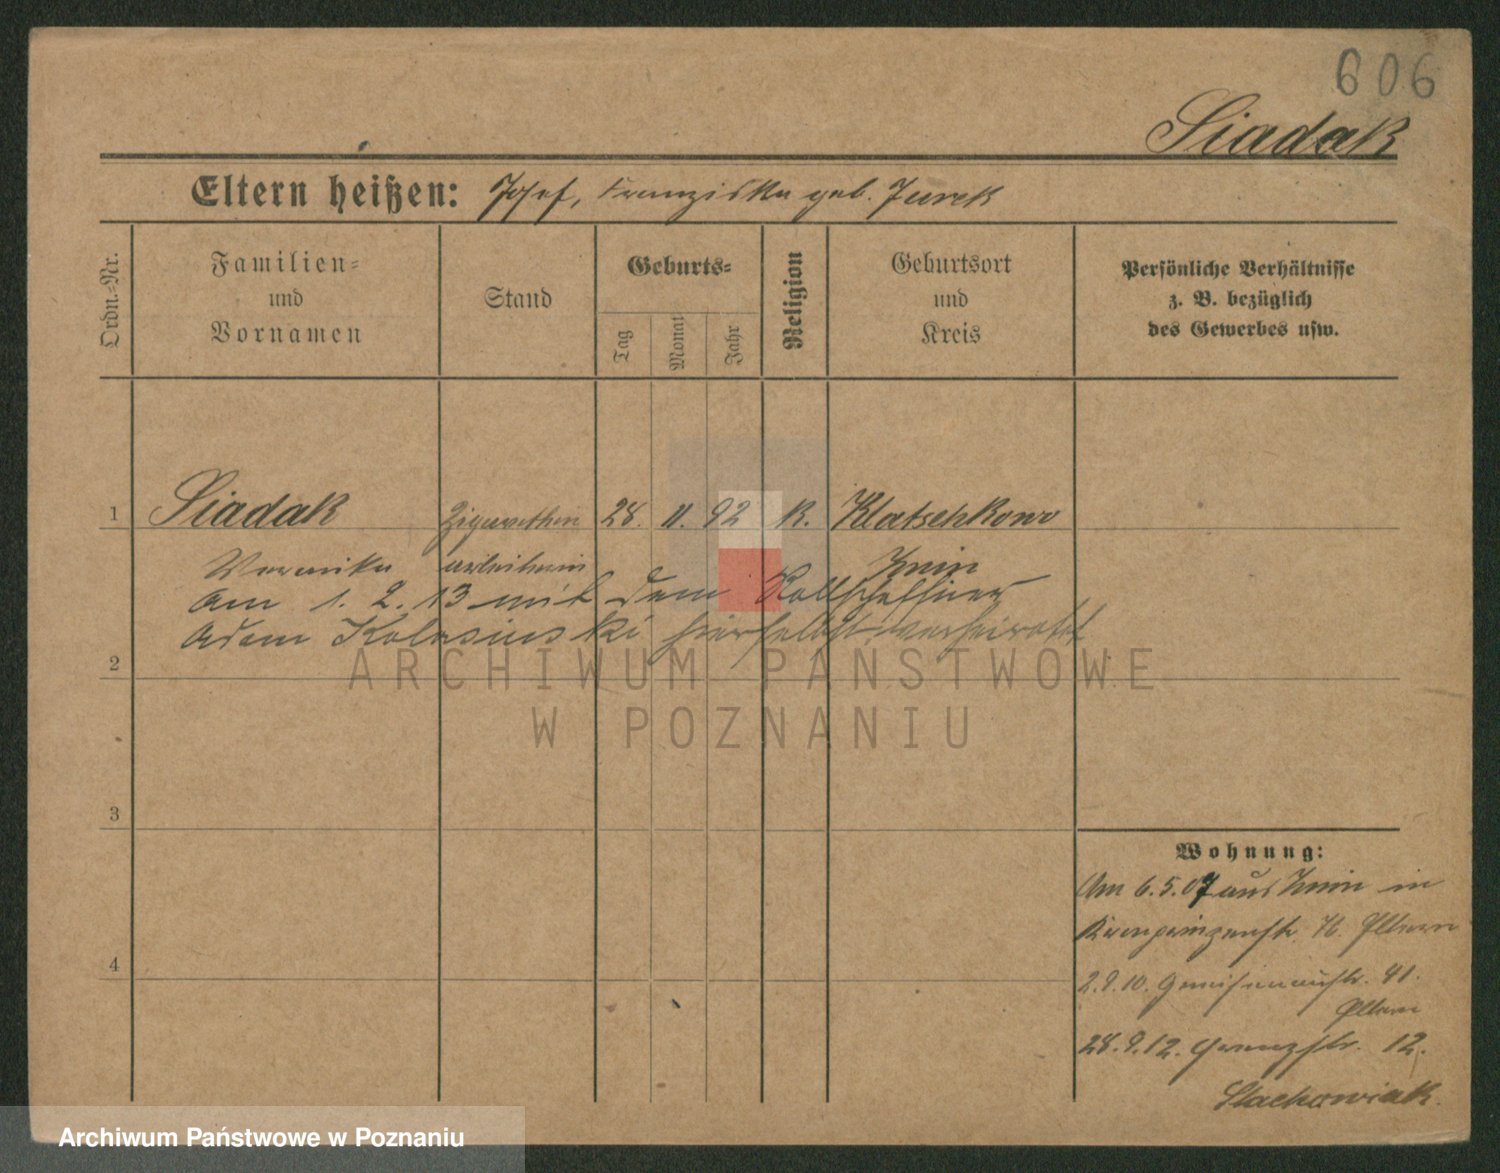 606
Siadak
Eltern heißen: Josef, Franziska geb. Jurek
Ordn.-Nr.
Familien-
und
Vornamen
Stand
Geburts-
Tag
Monat
Jahr
Religion
Geburtsort
und
Kreis
Persönliche Verhältnisse
z. B. bezüglich
des Gewerbes usw.
1 Siadak Zigaretten 28. 11. 92 K. Klatschkowo
Veronika arbeiterin Znin
Am 1. 2. 13 mit dem
Adam Kolasinski hierselbst verheiratet
2
3
4
Wohnung:
Am 6.5.07 aus Znin in
Kronprinzenstr. Eltern
2.9.10. Gneisenaustr. 41.
Eltern
28.9.12. Grenzstr. 12.
Stachowiak.
ARCHIWUM PAŃSTWOWE
W POZNANIU
Archiwum Państwowe w Poznaniu